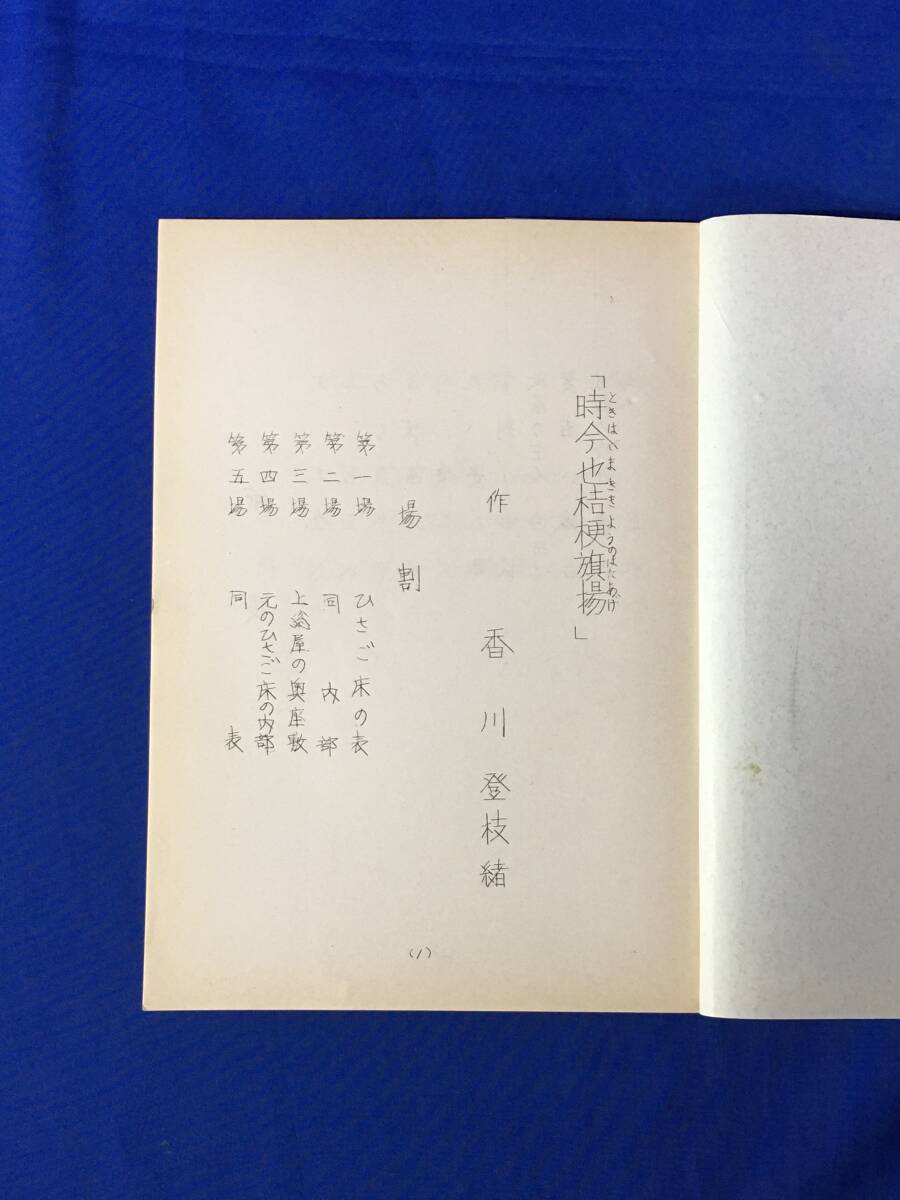 「時今也桔梗旗揚」
ときはいまききようのはたあげ
作 香川登枝緒
場割
第一場 ひさご床の表
第二場 同内部
第三場 上総屋の奥座敷
第四場 元のひさご床の内部
第五場 同表
(1)